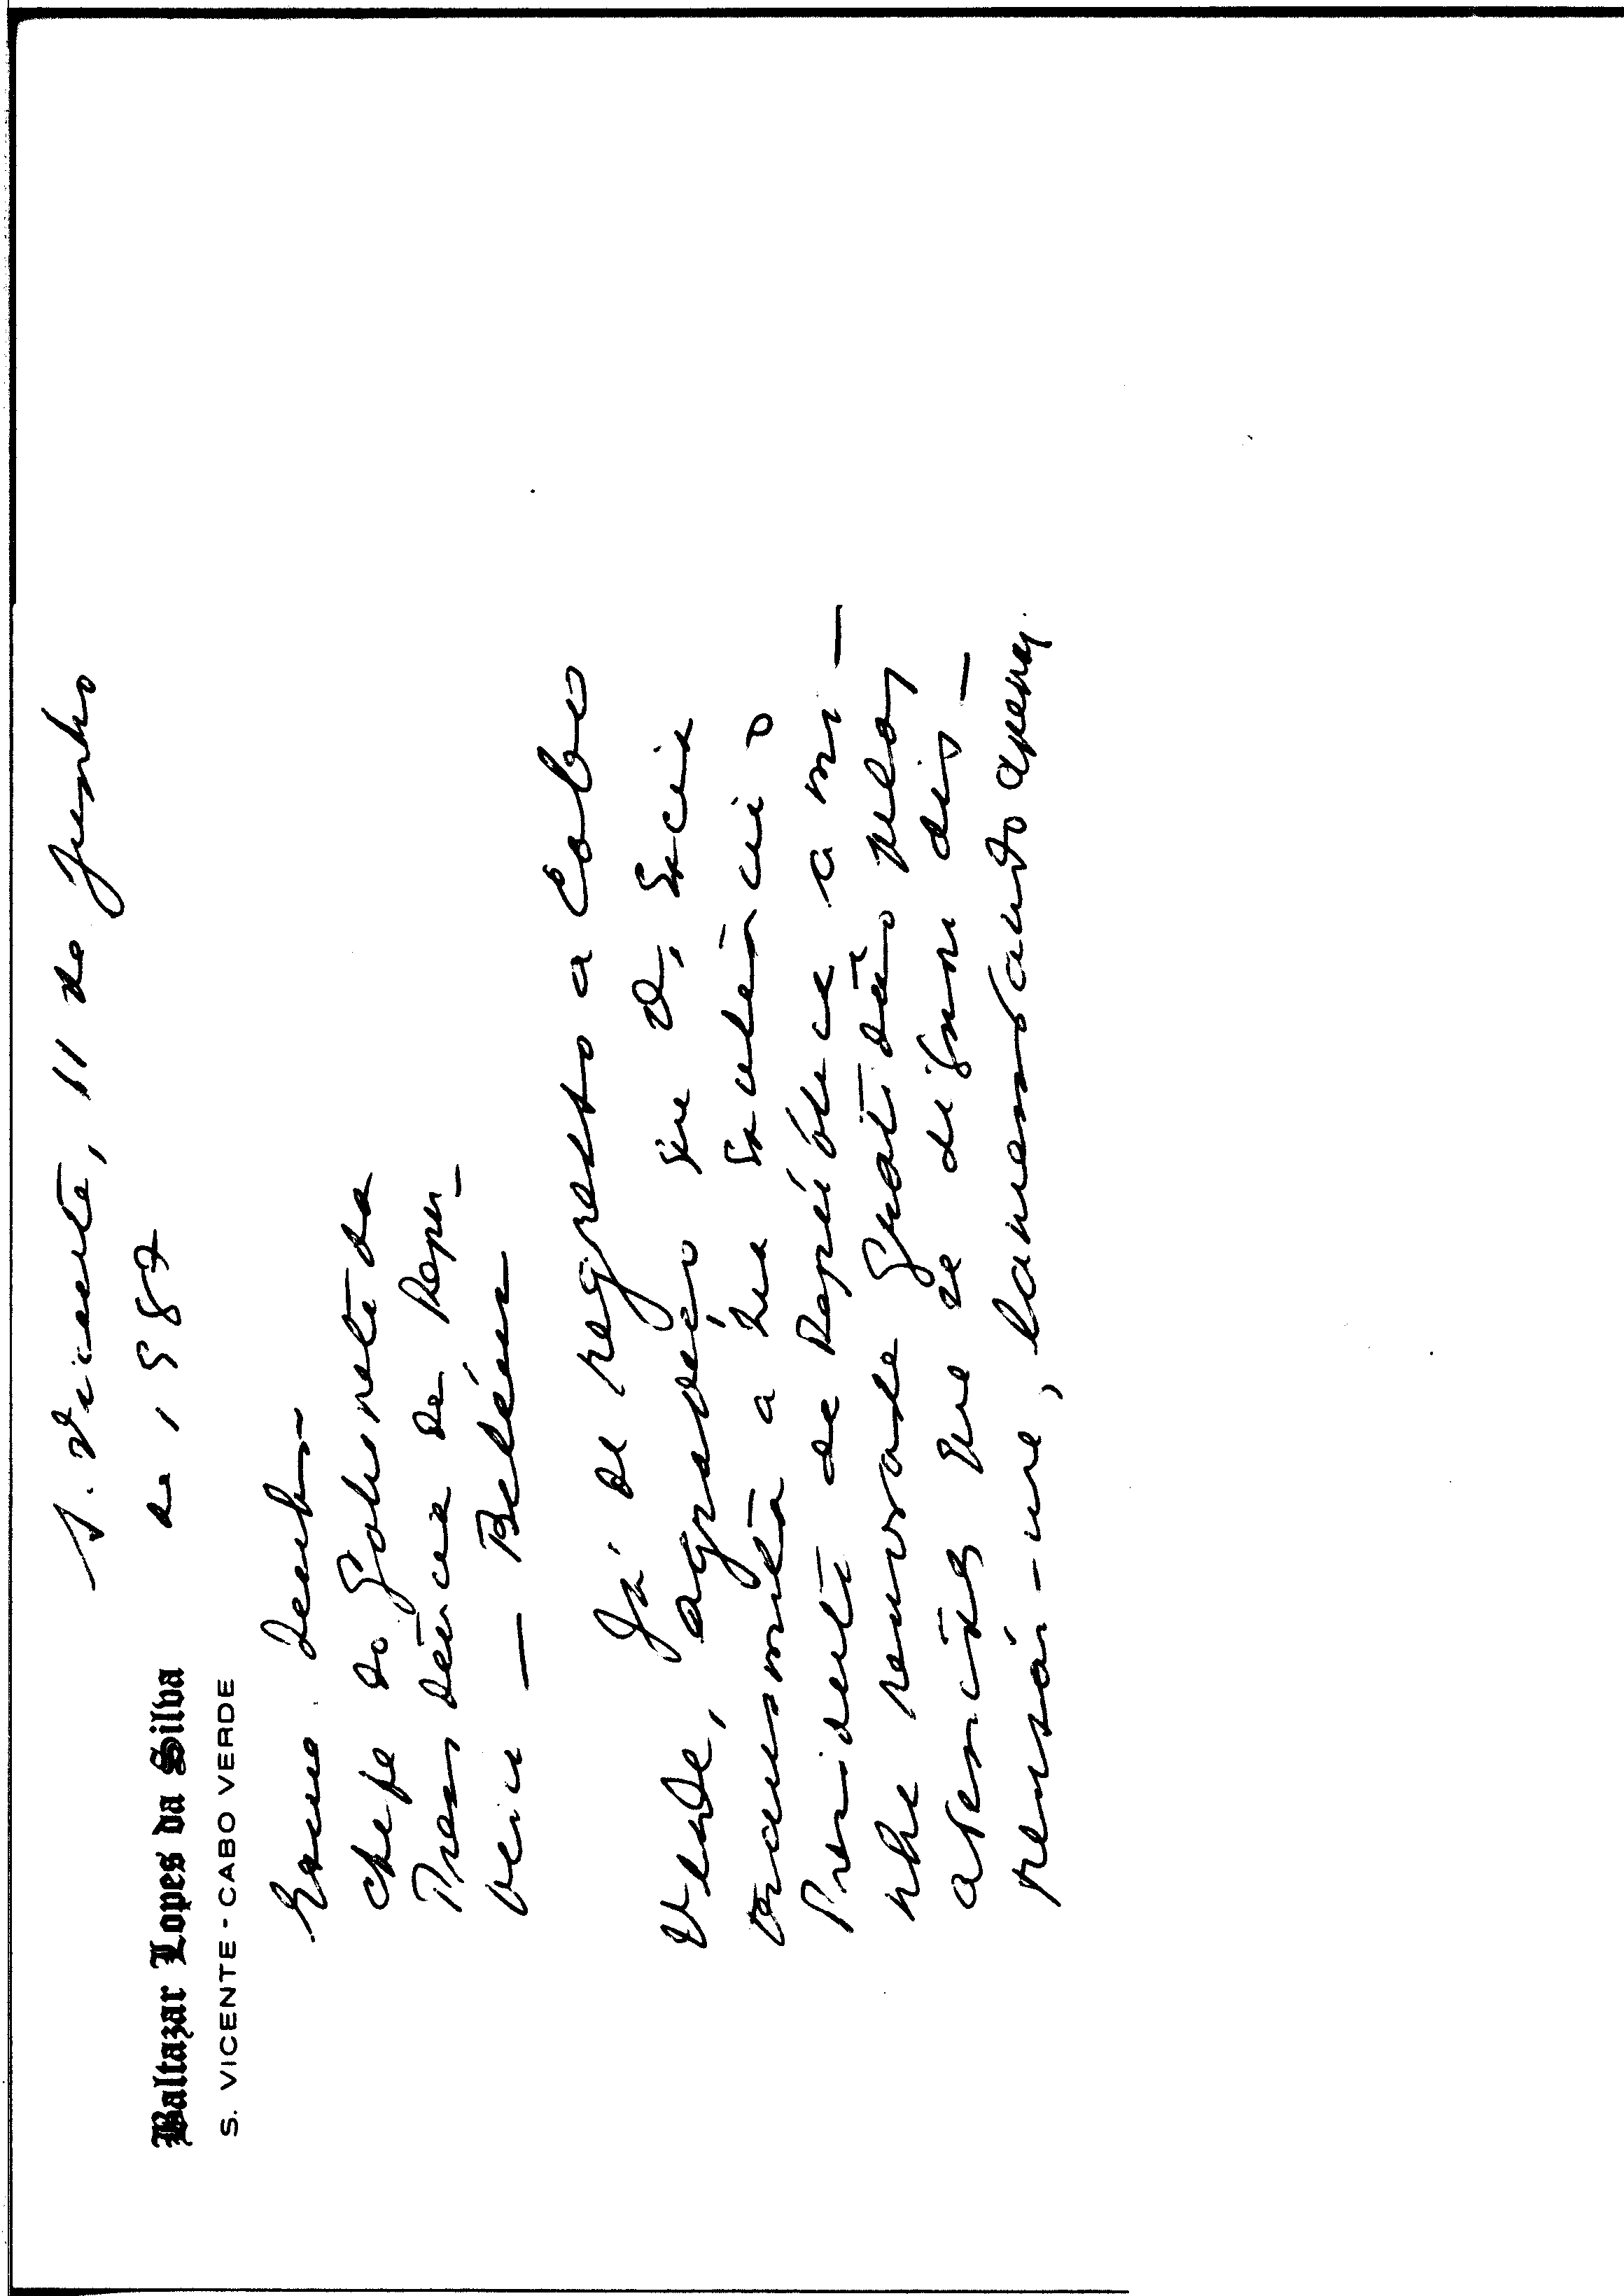 S. Vicente, 11 de Junho
de 1987
Baltazar Lopes da Silva
S. VICENTE - CABO VERDE
Exmo. Senhor
Chefe do Gabinete da
Presidência da Repú-
blica — Belém
Já de regresso a Cabo
Verde, agradeço que V. Excia
transmita a Sua Excelência o
Presidente da República a mi-
nha renovada gratidão pelas
atenções que se dignou dis-
pensar-me, lamentando apenas